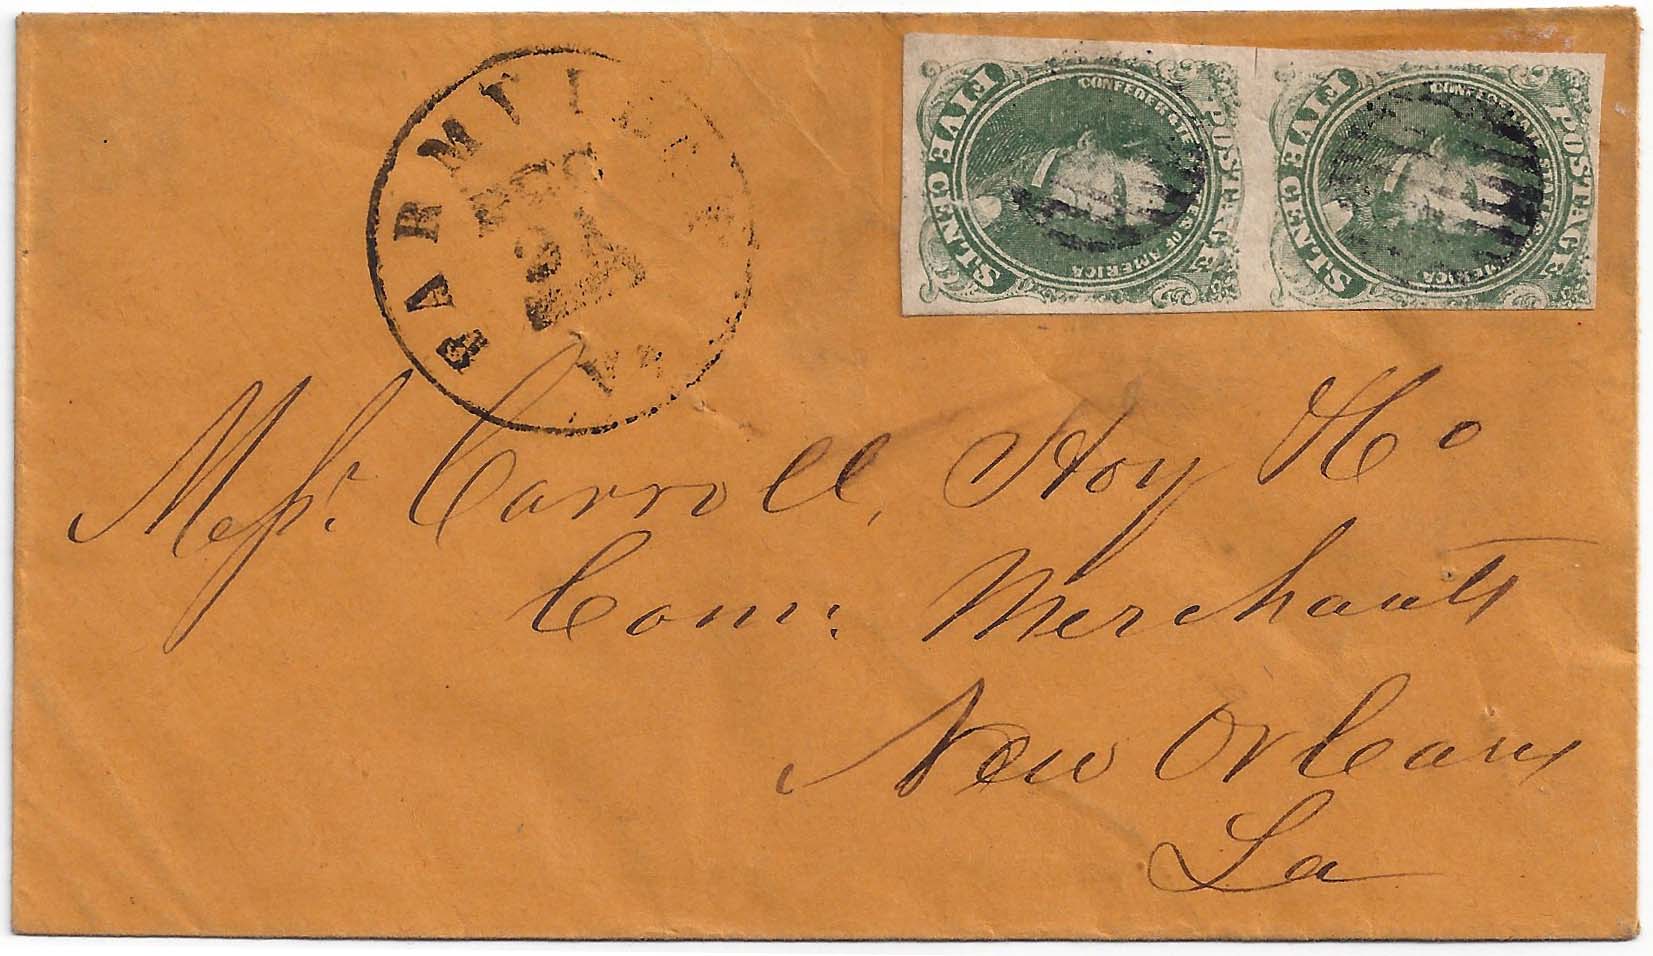 FARMVILLE
DEC
VA
FIVE CENTS
CONFEDERATE STATES OF AMERICA
POSTAGE
FIVE CENTS
CONFEDERATE STATES OF AMERICA
POSTAGE
Messrs. Carroll, Hoy & Co
Com: Merchants
New Orleans
La